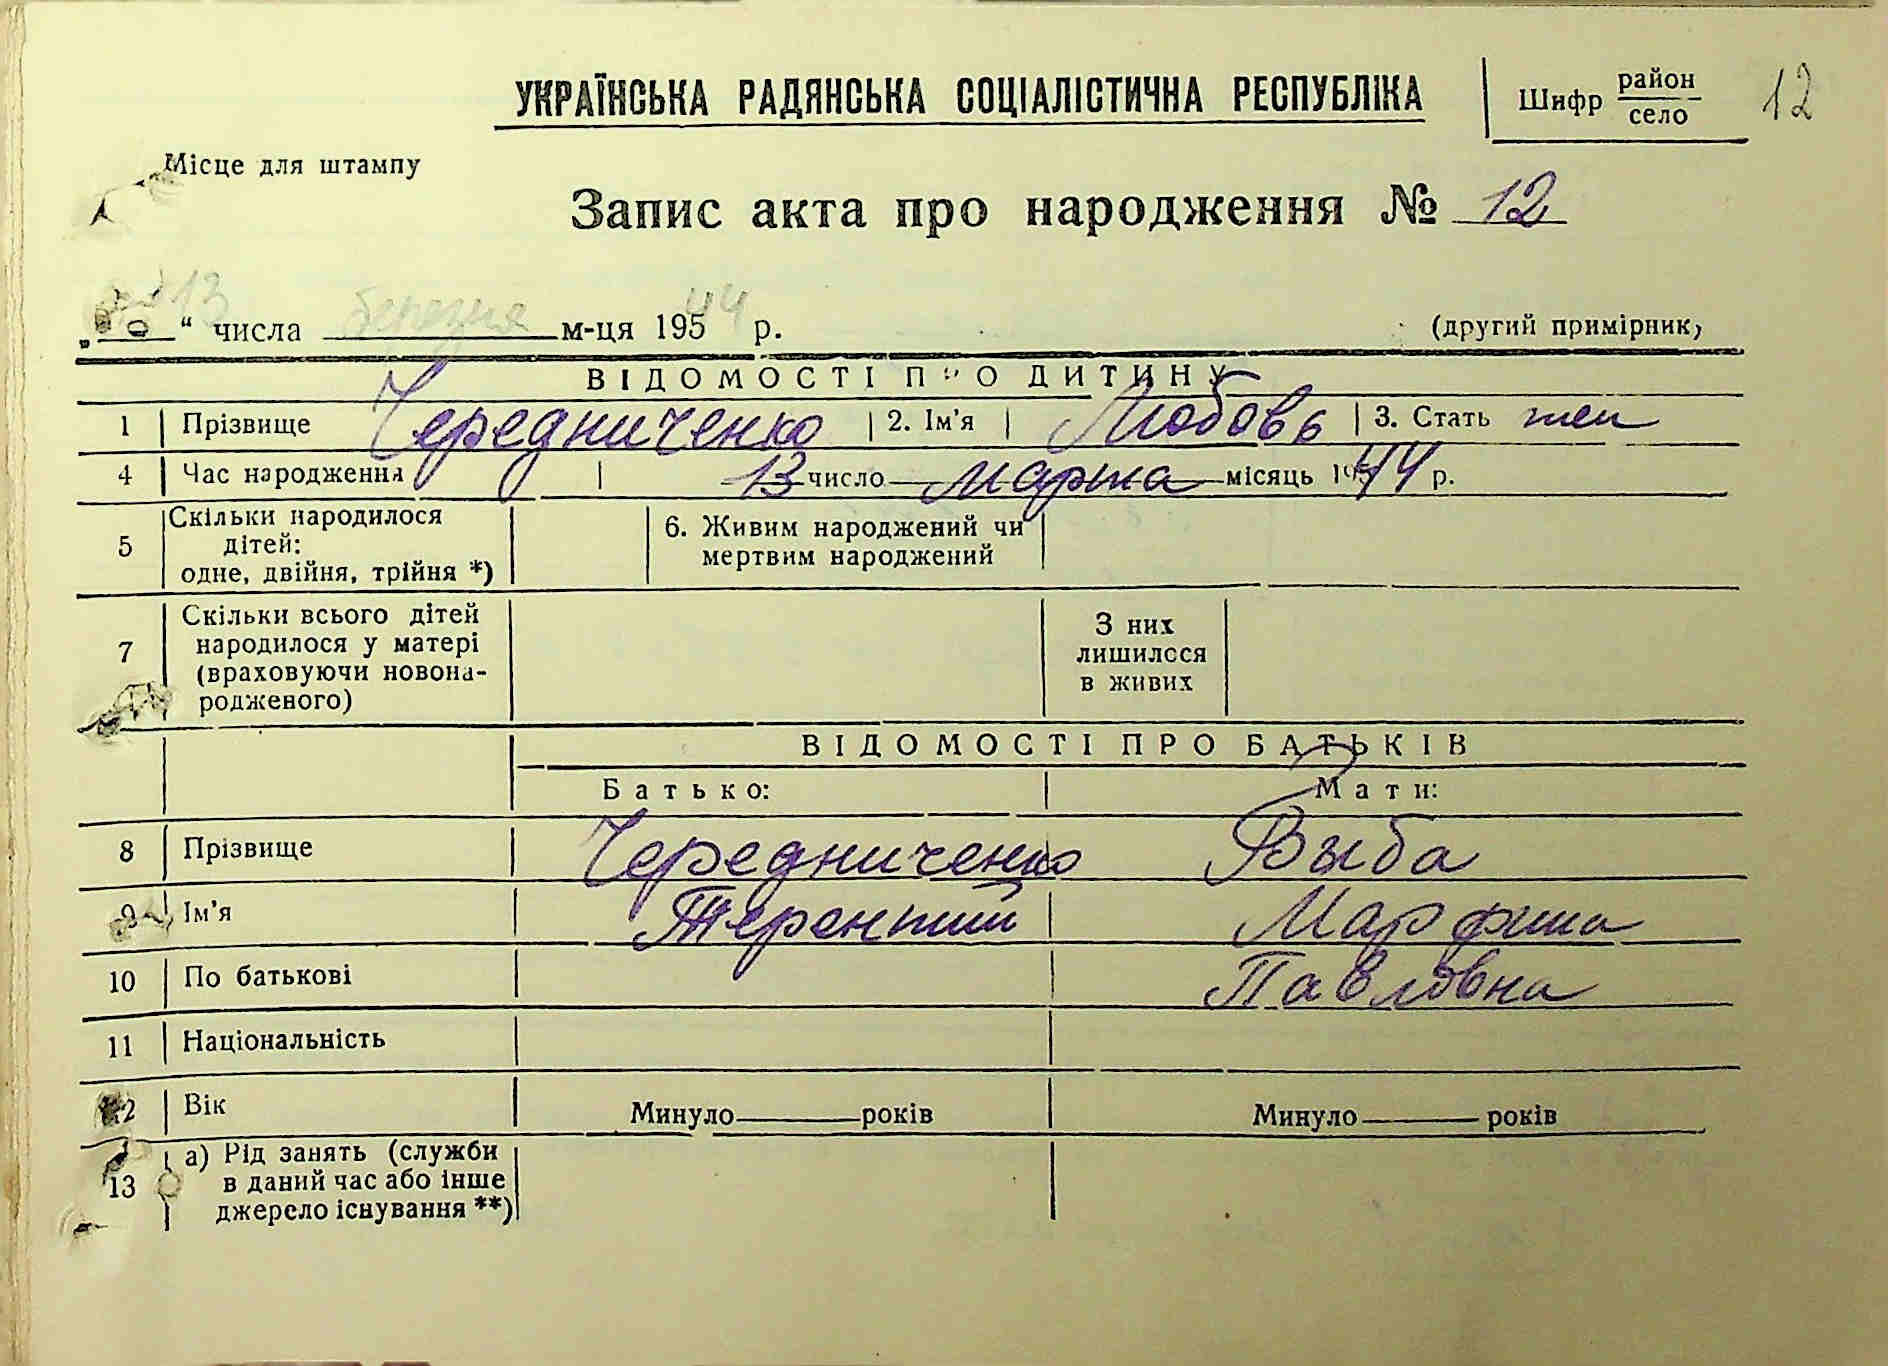 УКРАЇНСЬКА РАДЯНСЬКА СОЦІАЛІСТИЧНА РЕСПУБЛІКА
Шифр район село 12
Місце для штампу
Запис акта про народження № 12
13 " числа березня м-ця 195 44 р. (другий примірник)
ВІДОМОСТІ ПРО ДИТИНУ
1 Прізвище Чередниченко 2. Ім'я Любовь 3. Стать жен
4 Час народження 13 число марта місяць 1944 р.
5 Скільки народилося дітей: одне, двійня, трійня *) 6. Живим народжений чи мертвим народжений
7 Скільки всього дітей народилося у матері (враховуючи новонародженого) З них лишилося в живих
ВІДОМОСТІ ПРО БАТЬКІВ
Батько: Мати:
8 Прізвище Чередниченко Выба
9 Ім'я Терентий Марфина
10 По батькові Павловна
11 Національність
12 Вік Минуло років Минуло років
13 а) Рід занять (служби в даний час або інше джерело існування **)